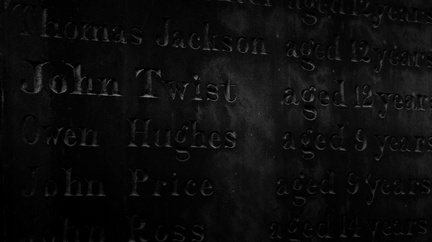 aged 12 years
Thomas Jackson aged 12 years
John Twist aged 12 years
Owen Hughes aged 9 years
John Price aged 9 years
John Ross aged 11 years